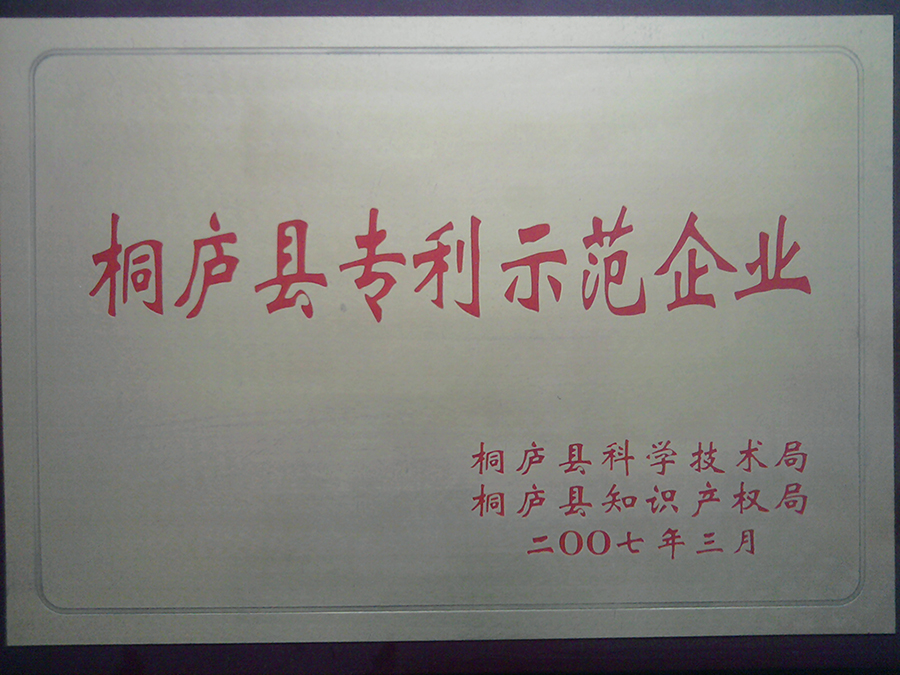 桐庐县专利示范企业
桐庐县科学技术局
桐庐县知识产权局
二OO七年三月